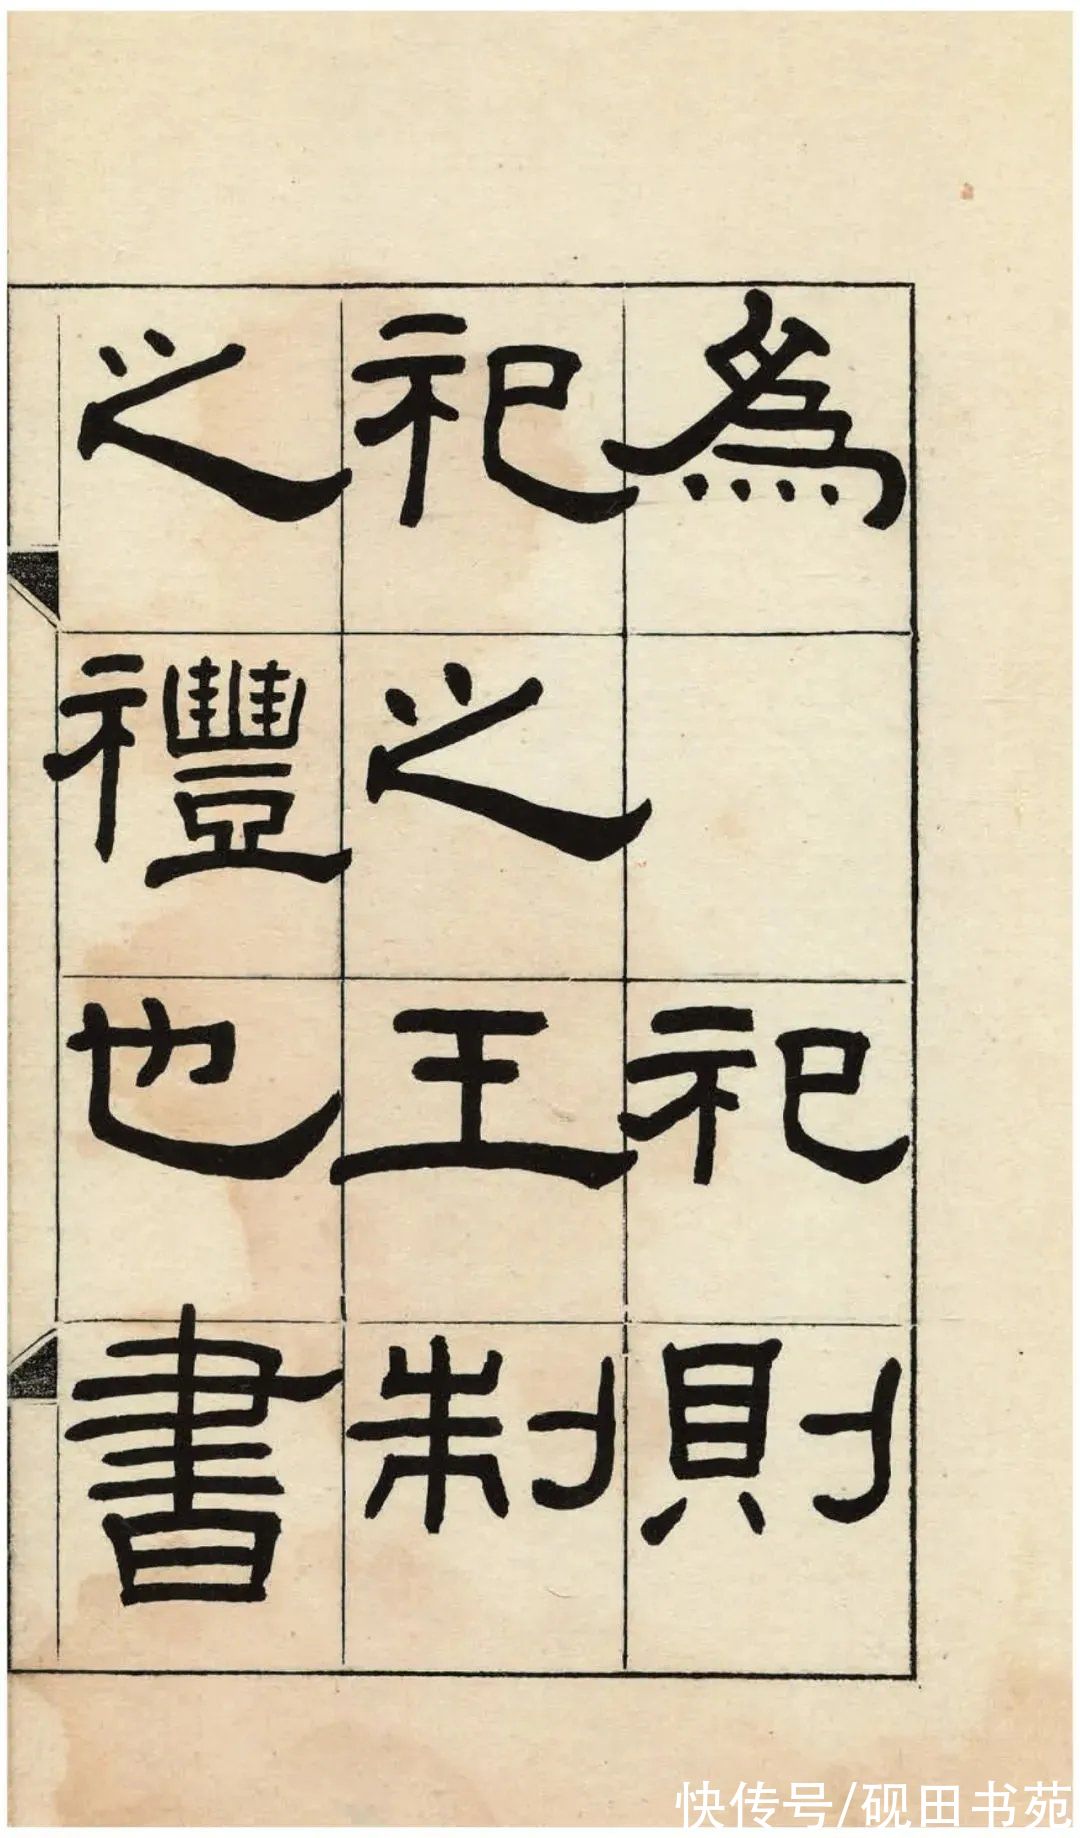 為祀則
祀之王制
之禮也書
快传号/砚田书苑